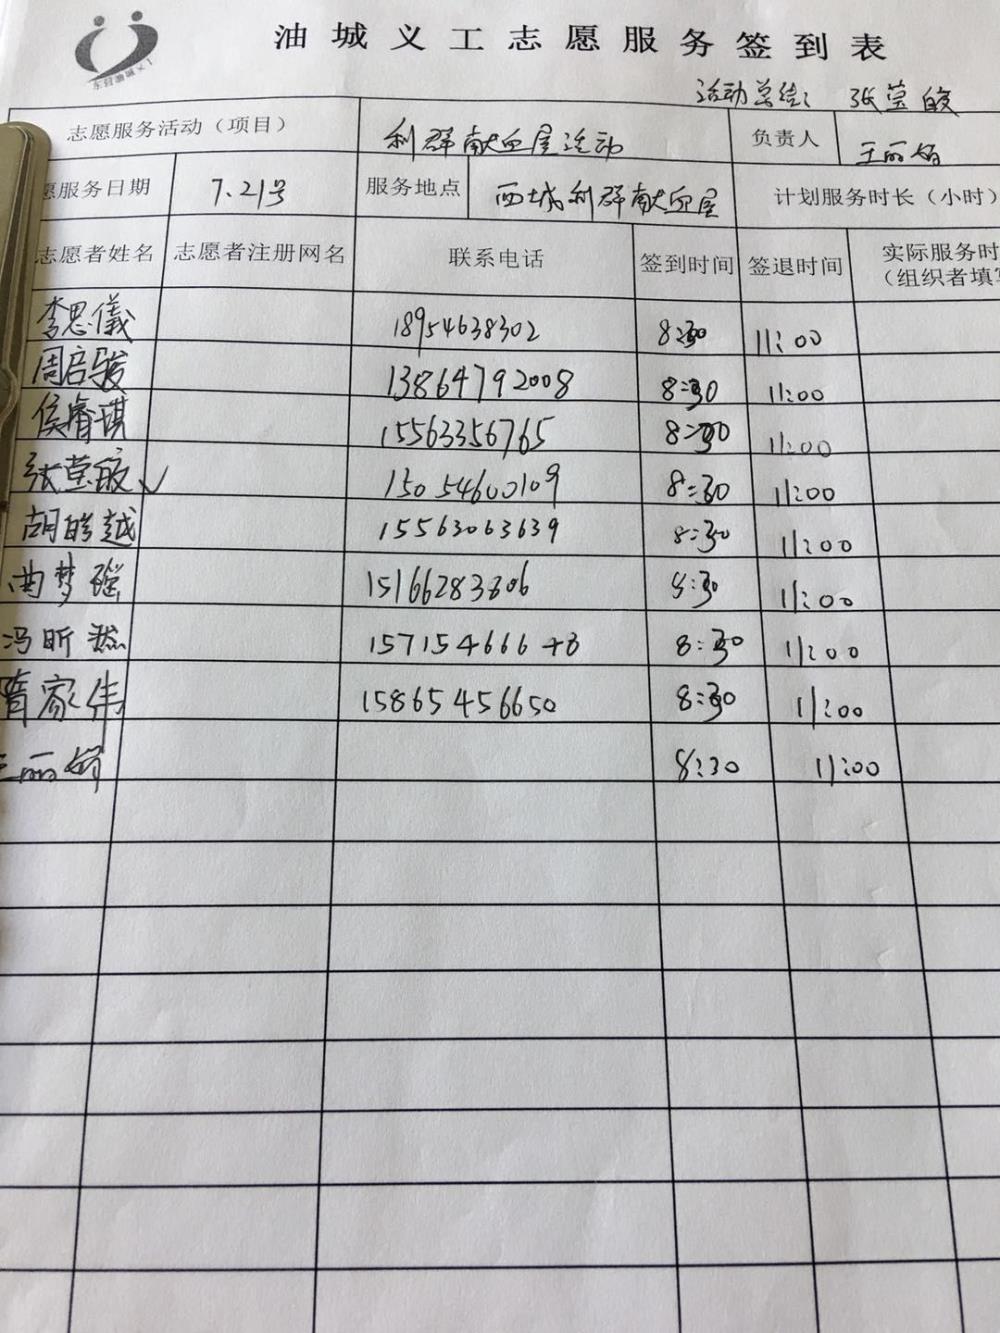 油城义工志愿服务签到表
活动总结： 张莹皎
志愿服务活动（项目） 利群献血屋活动 负责人 王丽娟
愿服务日期 7.21号 服务地点 西城利群献血屋 计划服务时长（小时）
志愿者姓名 志愿者注册网名 联系电话 签到时间 签退时间 实际服务时
（组织者填写
李思儀 18954638302 8:30 11:00
周启骏 13864792008 8:30 11:00
侯睿琪 15563356765 8:30 11:00
张莹皎 ✓ 15054600109 8:30 11:00
胡皓越 15563063639 8:30 11:00
曲梦瑶 15166283306 8:30 11:00
冯昕 8:30 11:00
家伟 15865456650 8:30 11:00
王丽娟 8:30 11:00